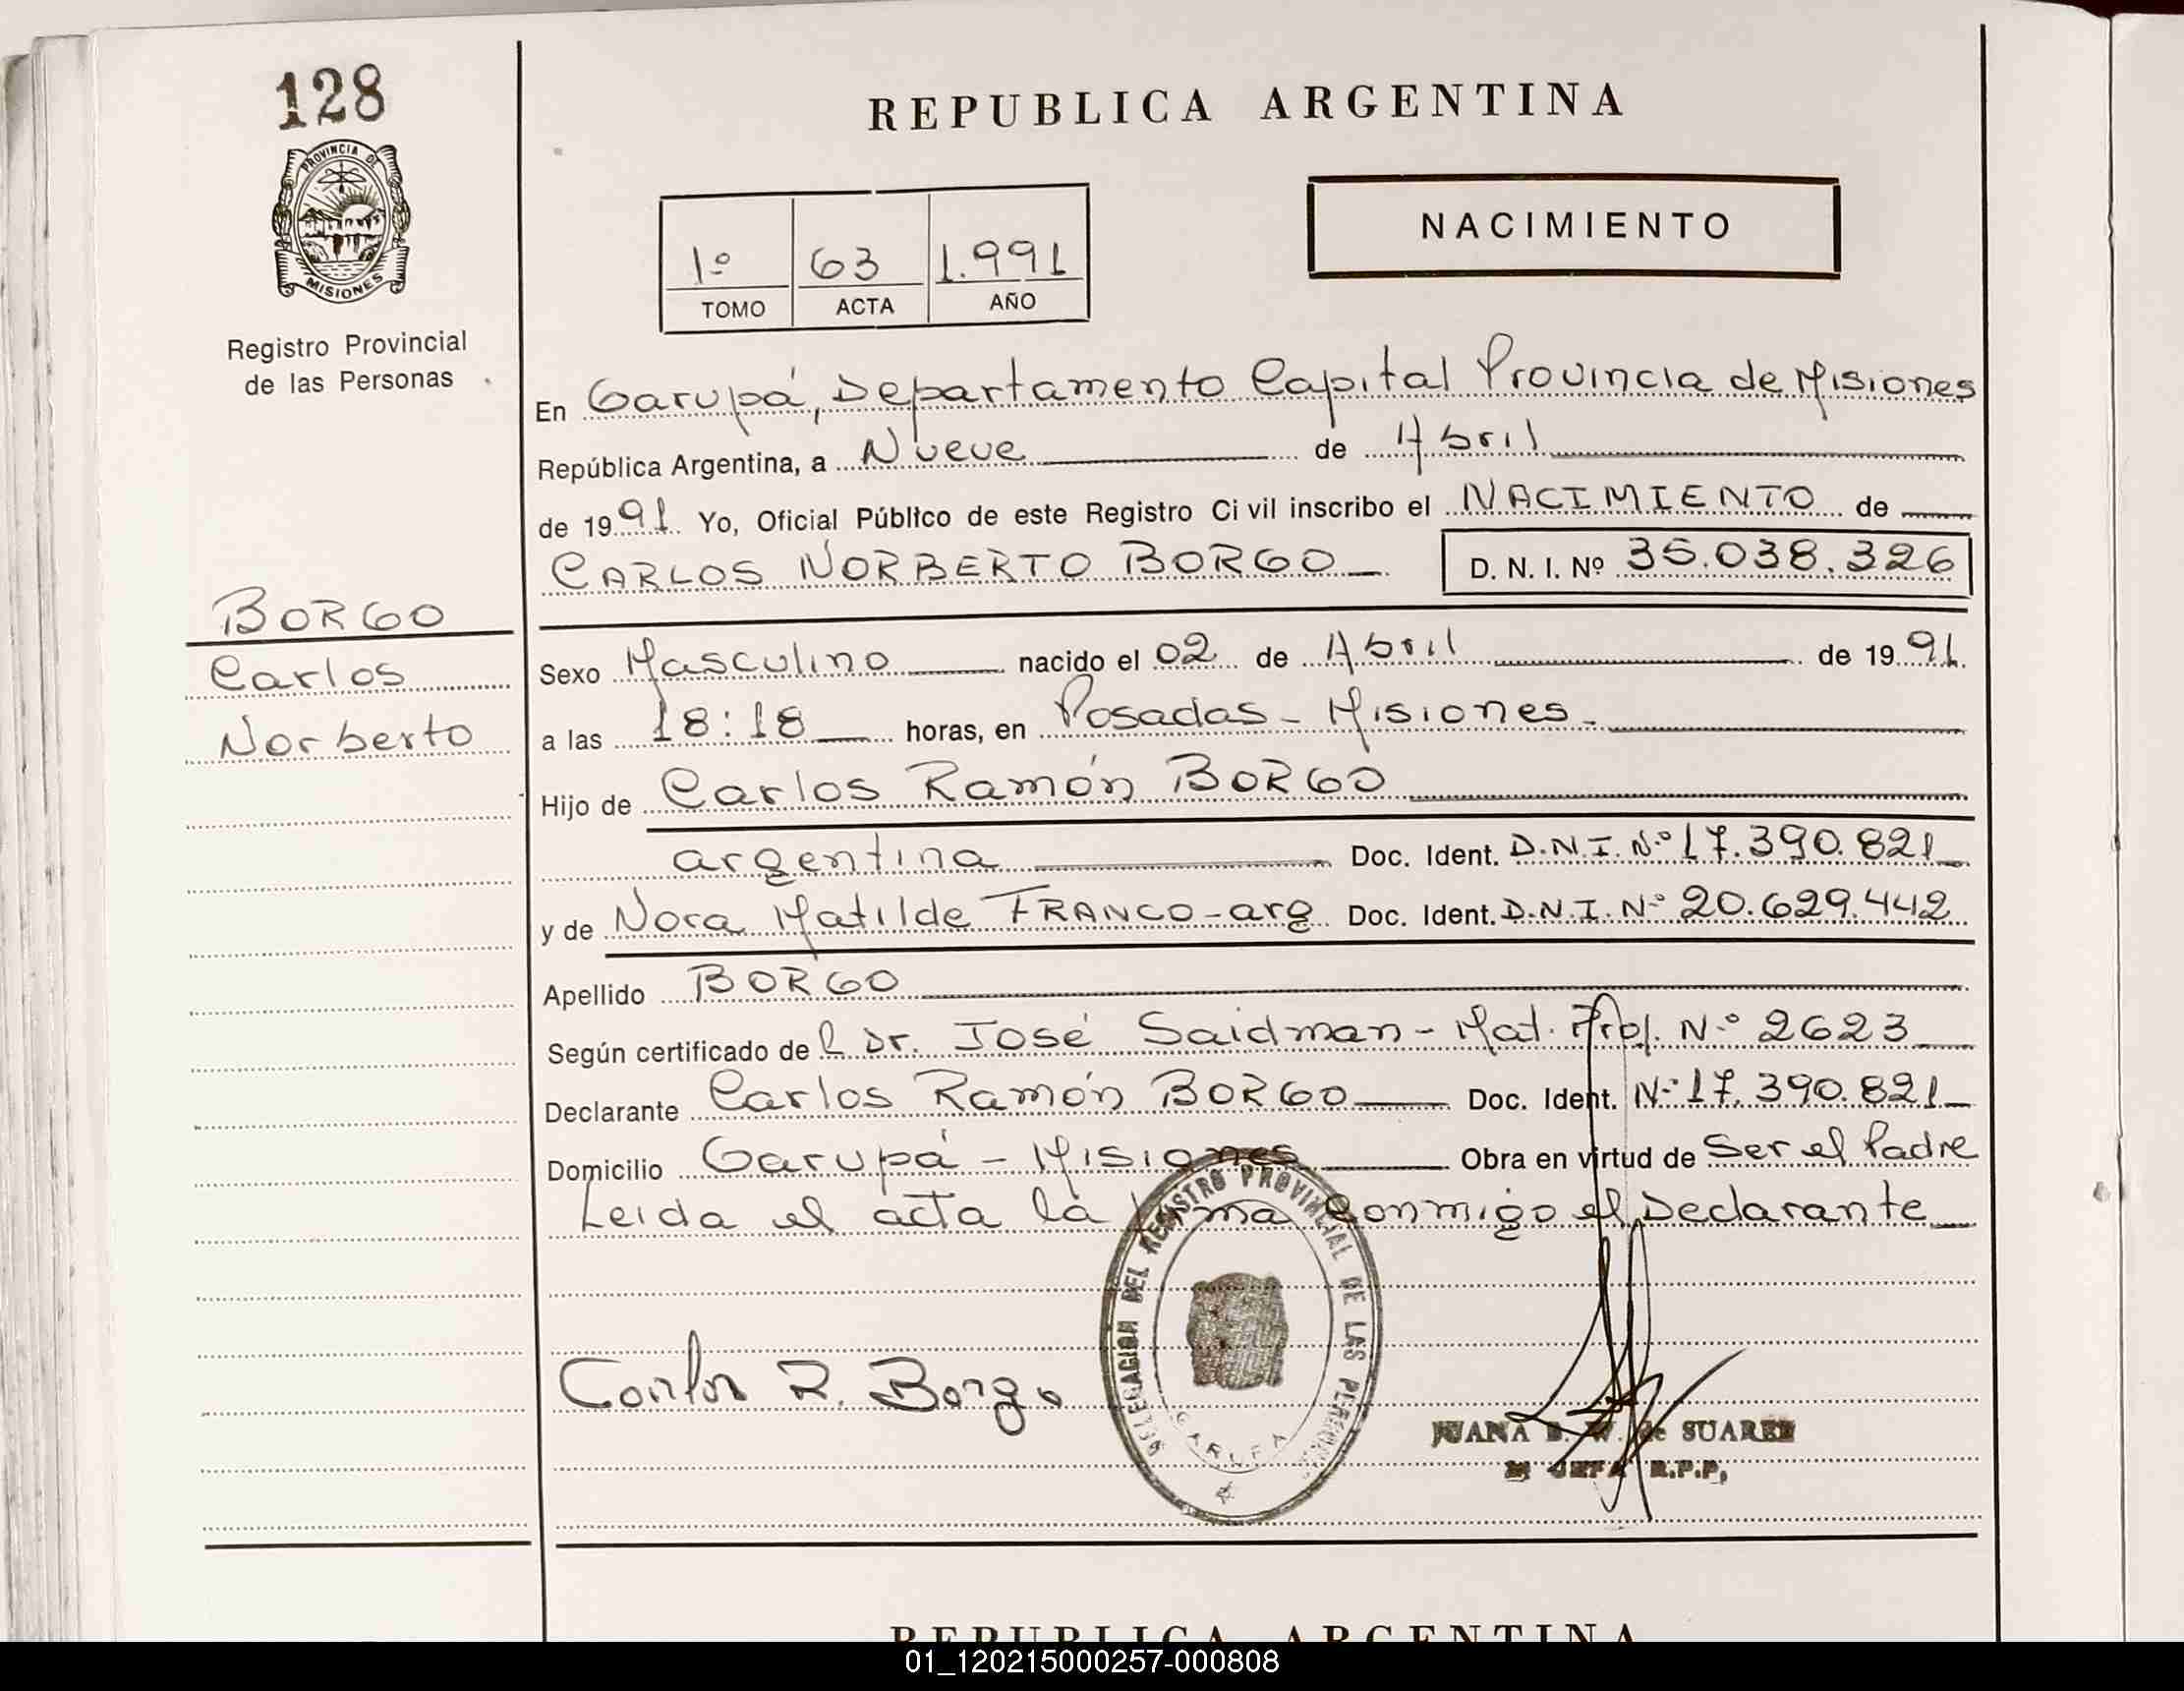 128
PROVINCIA DE
MISIONES
Registro Provincial
de las Personas
REPUBLICA ARGENTINA
1º 63 1.991
TOMO ACTA AÑO
NACIMIENTO
En Garupá, Departamento Capital Provincia de Misiones
República Argentina, a Nueve de Abril
de 1991. Yo, Oficial Público de este Registro Civil inscribo el NACIMIENTO de
CARLOS NORBERTO BORGO D. N. I. Nº 35.038.326
BORGO
Carlos
Norberto
Sexo Masculino nacido el 02 de Abril de 1991.
a las 18:18 horas, en Posadas - Misiones.
Hijo de Carlos Ramón BORGO
argentina Doc. Ident. D.N.I. Nº 17.390.821
y de Nora Matilde FRANCO-arg Doc. Ident. D.N.I. Nº 20.629.442
Apellido BORGO
Según certificado de l Dr. José Saidman - Mat. Prof. Nº 2623
Declarante Carlos Ramón BORGO Doc. Ident. Nº 17.390.821
Domicilio Garupá - Misiones Obra en virtud de Ser el Padre
Leida el acta la firma conmigo el Declarante
DELEGACION DEL REGISTRO PROVINCIAL DE LAS PERSONAS
GARUPA
Carlos R. Borgo
JUANA E. W. de SUAREZ
JEFA R.P.P.
REPUBLICA ARGENTINA
01_120215000257-000808